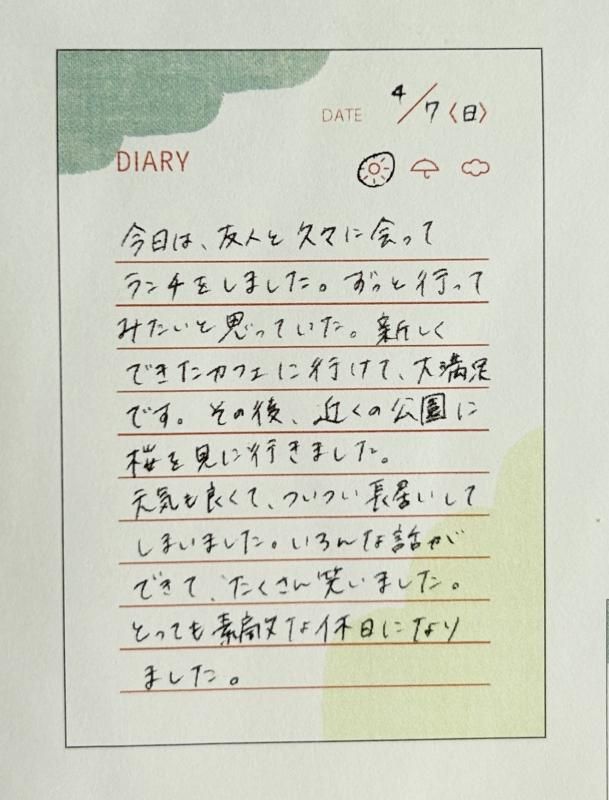 DATE 4/7〈日〉
DIARY
今日は、友人と久々に会って
ランチをしました。ずっと行って
みたいと思っていた。新しく
できたカフェに行けて、大満足
です。その後、近くの公園に
桜を見に行きました。
元気も良くて、ついつい長居して
しまいました。いろんな話が
できて、たくさん笑いました。
とっても素敵な休日になり
ました。